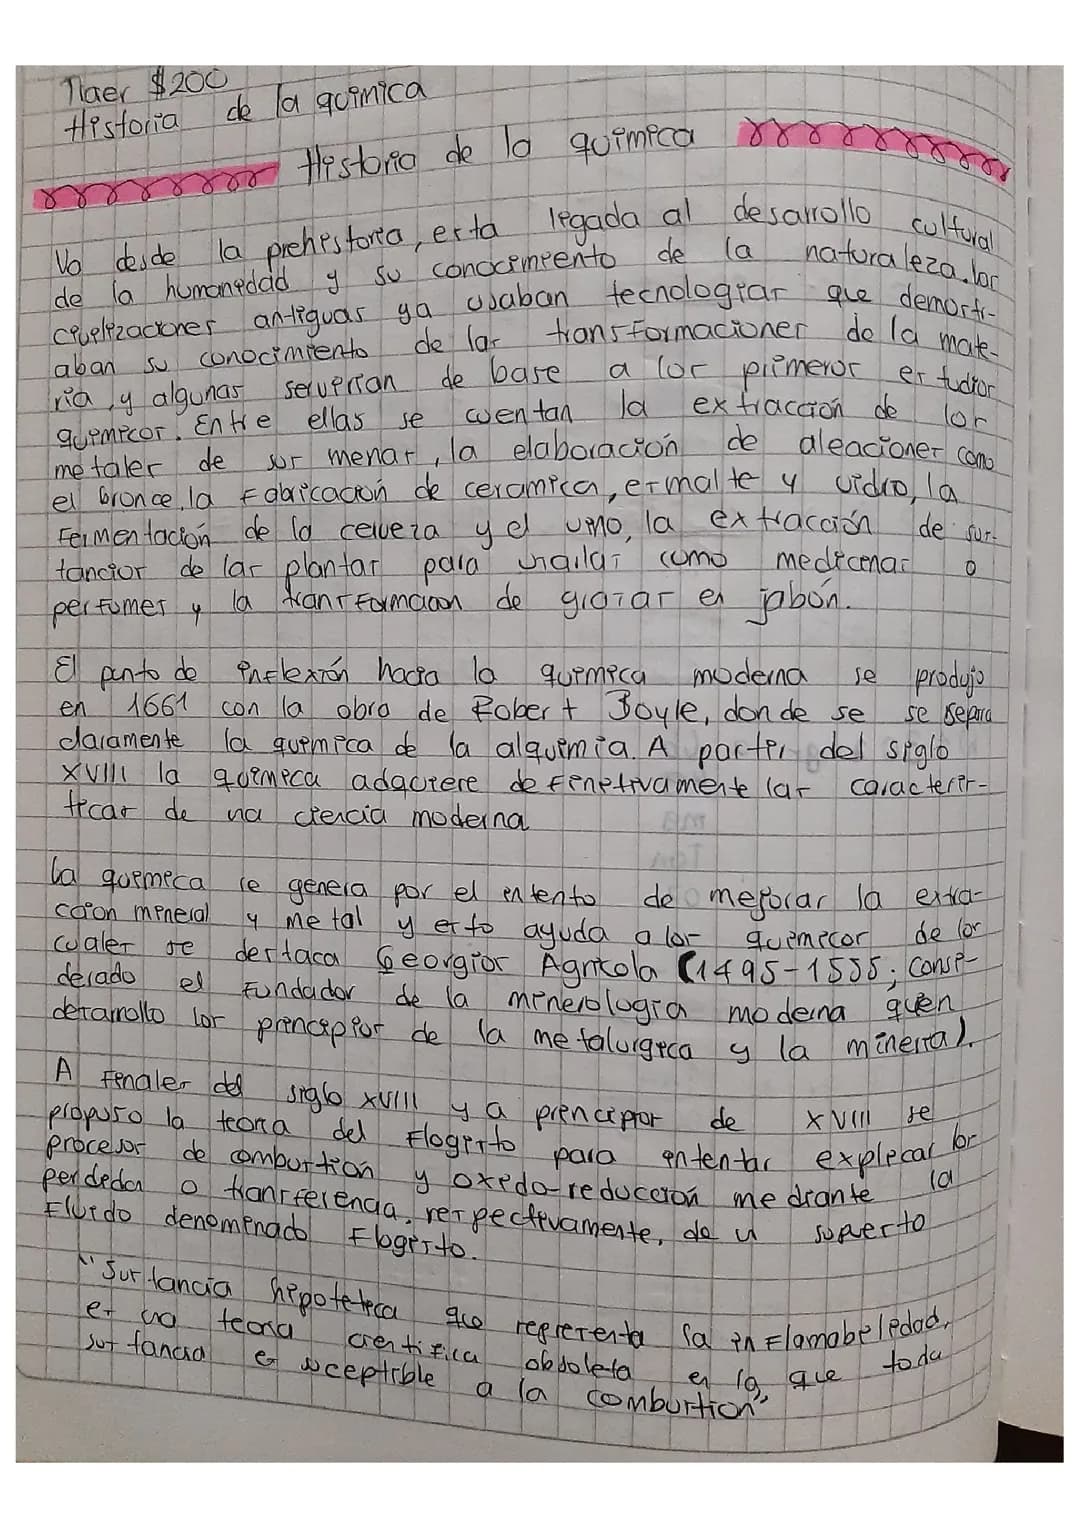 Traer $200
Historia de la química
Historia de la química
Va desde la prehistoria, esta legada al desarrollo cultural
de la humanidad y su conocimiento de la naturaleza. las
civilizaciones antiguas ya usaban tecnologias que demostr-
aban su conocimiento de las transformaciones de la mate-
ria, y algunas servirian de base a los primeros estudios
quimicos. Entre ellas se cuentan la extracción de los
metales de sus menas, la elaboración de aleaciones como
el bronce, la fabricación de ceramica, esmalte y vidro, la
Fermentación de la cerveza y el vino, la extracción de sus-
tancias de las plantas para usarlas como medicinas o
perfumes y la transformacion de grasas en jabón.
El punto de inflexión hacia la quimica moderna se produjo
en 1661 con la obra de Robert Boyle, donde se se separa
claramente la quimica de la alquimia. A partir del siglo
XVIII la quimica adquiere definitivamente las caracteris-
ticas de una ciencia moderna
La quimica se genera por el intento de mejorar la extra-
ccion mineral y metal y esto ayuda a los quimicos de los
cuales se destaca Georgios Agricola (1495-1555; consi-
derado el fundador de la minerologia moderna quen
desarrollo los principios de la metalurgica y la mineria).
A finales del siglo XVIII y a principios de XVIII se
propuso la teoria del Flogisto para intentar explicar los
procesos de combustion y oxido-reducción mediante la
perdedon o transferencia, respectivamente, de u supuesto
Fluido denominado Flogisto.
"Sustancia hipotetica que representa la inflamabilidad,
es una teoria cientifica obsoleta en la que toda
sustancia es suceptible a la combustion"